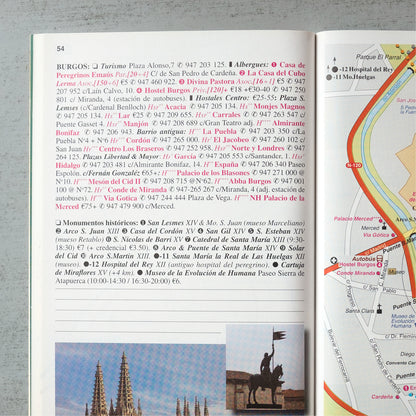 54
BURGOS: ❏ Turismo Plaza Alonso,7 ✆ 947 203 125. ❙Albergues: ❶ Casa de
Peregrinos Emaús Par.[20÷4] C/ de San Pedro de Cardeña. ❷ La Casa del Cubo
Lerma Asoc.[150÷6] €5 ✆ 947 460 922. ❸ Divina Pastora Asoc.[16÷1] €5 ✆ 947
207 952 c/Laín Calvo, 10. ❹ Hostel Burgos Priv.[120]+ €18 +€30-40 ✆ 947 250
801 c/ Miranda, 4 (estación de autobuses). ❙ Hostales Centro: €25-55: Plaza S.
Lesmes (c/Cardenal Benlloch) Hsr Acacia ✆ 947 205 134. Hs Monjes Magnos
✆ 947 205 134. Hs Lar ✆ 947 209 655. Hsr Carrales ✆ 947 263 547 c/
Puente Gasset 4. Hsr Manjón ✆ 947 208 689 c/Gran Teatro adj. H Almirante
Bonifaz ✆ 947 206 943. Barrio antiguo: H La Puebla ✆ 947 203 350 c/La
Puebla Nº4 + €45+. Hr Cordón ✆ 947 265 000. Hr El Jacobeo ✆ 947 260 102 c/
San Juan Hr Centro Los Braseros ✆ 947 252 958. Hsr Norte y Londres ✆ 947
264 125. Plaças Libertad & Mayor: Hsr García ✆ 947 205 553 c/Santander, 1. Hsr
Hidalgo ✆ 947 203 481 c/Almirante Bonifaz, 14. H España ✆ 947 206 340 Paseo
Espolón. c/Fernán González €65+: H Palacio de los Blasones ✆ 947 271 000 @
Nº10. H Mesón del Cid II ✆ 947 208 715 @Nº62. H Abba Burgos ✆ 947 00
100 @ Nº72. Hs Conde de Miranda ✆ 947-265 267 c/Miranda, 4 (adj. estación de
autobuses). H Vía Gótica ✆ 947 244 444 Plaza de Vega. H NH Palacio de la
Merced €75+ ✆ 947 479 900 c/Merced.
❏ Monumentos históricos: ❶ San Lesmes XIV & Mo. S. Juan (museo Marceliano)
❷ Arco S. Juan XIII ❸ Casa del Cordón XV ❹ San Gil XIV ❺ S. Esteban XIV
(museo Retablo) ❻ S. Nicolas de Barri XV ❼ Catedral de Santa María XIII (9:30-
18:30) €7 (+ credencial €3.50). ❽ Arco & Puente de Santa María XIV ❾ Solar
del Cid ❿ Arco S.Martin XIII. ●-11 Santa María la Real de Las Huelgas XII
(museo). ●-12 Hospital del Rey XII (antiguo hospital de peregrino). ● Cartuja
de Miraflores XV (+4 km). ● Museo de la Evolución de Humana Paseo Sierra de
Atapuerca (10:00-14:30 / 16:30-20:00) €6.
Parque El Parral
●-12 Hospital del Rey
●-11 Mo.Huelgas
N-120
Palacio Merced H
Vía Gótica H
Autobús
Hostel Burgos
Conde Miranda
Museo
Santa Clara
c/ San Pedro de Cardeña
Cardeña